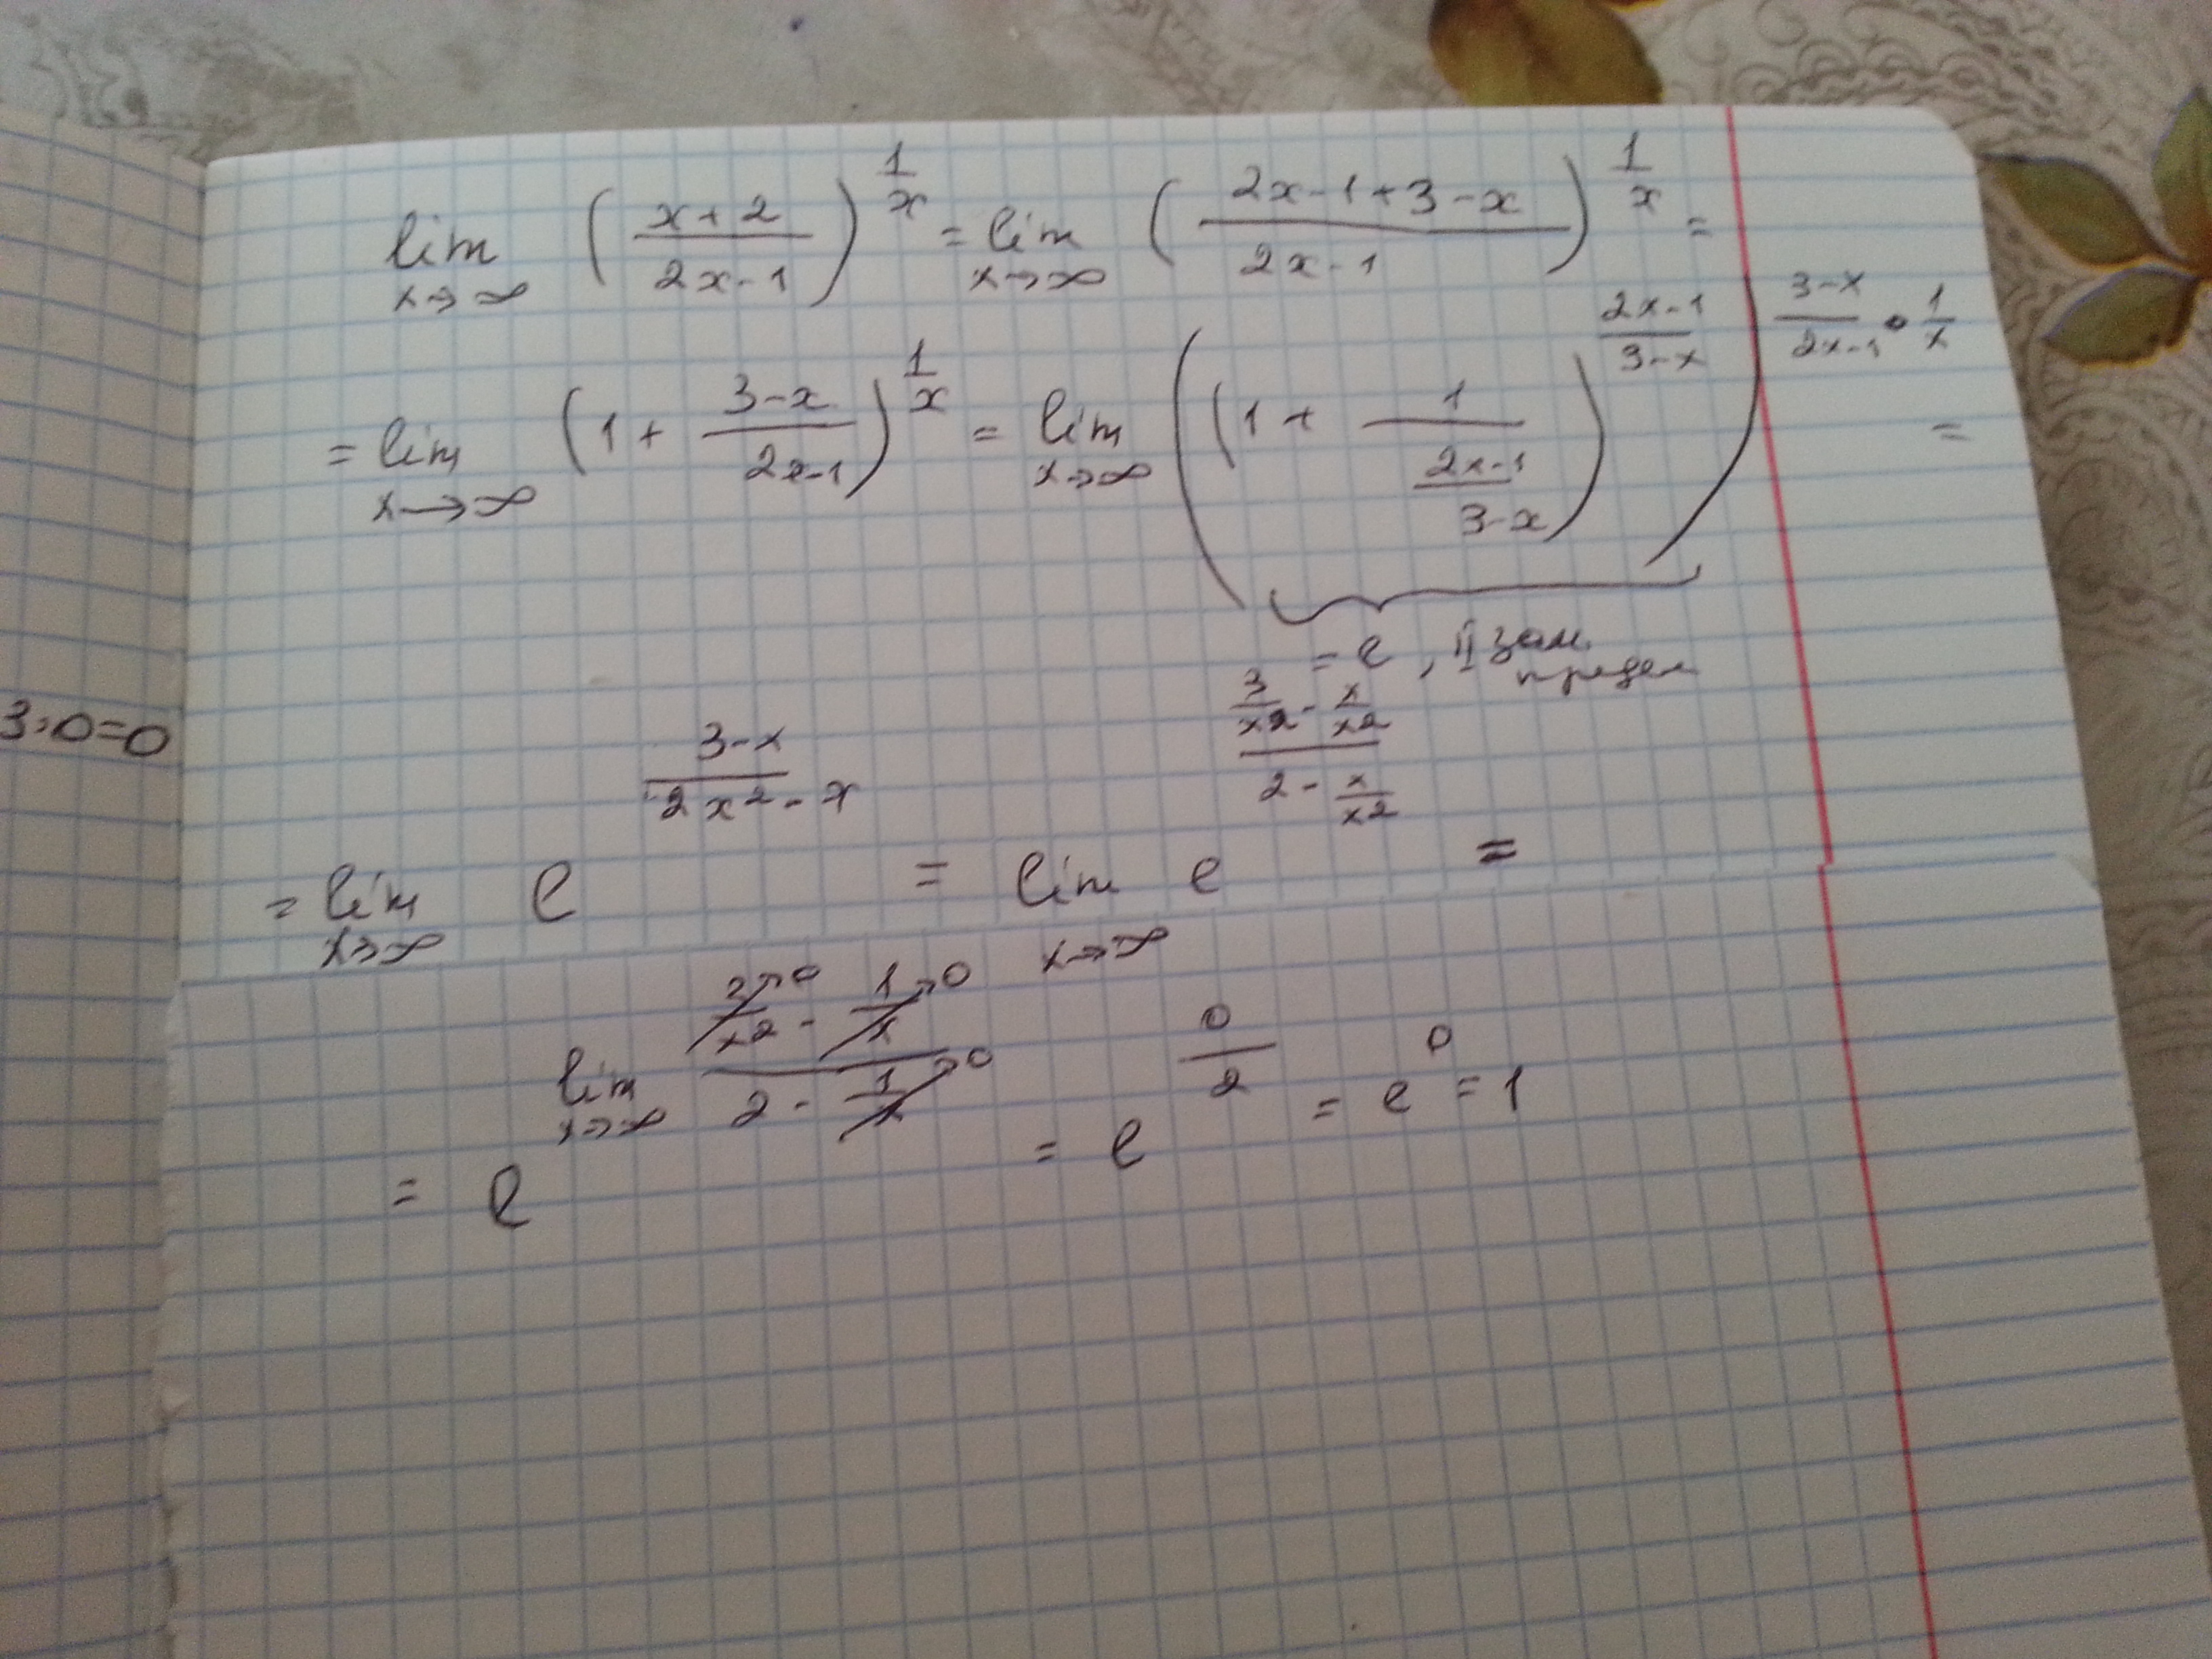 lim x→∞ ( (x+2)/(2x-1) )^(1/x) = lim x→∞ ( (2x-1+3-x)/(2x-1) )^(1/x) =
= lim x→∞ ( 1 + (3-x)/(2x-1) )^(1/x) = lim x→∞ ( ( 1 + 1/((2x-1)/(3-x)) )^((2x-1)/(3-x)) )^((3-x)/(2x-1) · 1/x) =
= e, II зам. предел
3·0=0
= lim x→∞ e^((3-x)/(2x²-x)) = lim x→∞ e^((3/x2 - x/x2)/(2 - x/x2)) =
= e^(lim x→∞ (3/x2→0 - 1/x→0)/(2 - 1/x→0)) = e^(0/2) = e^0 = 1